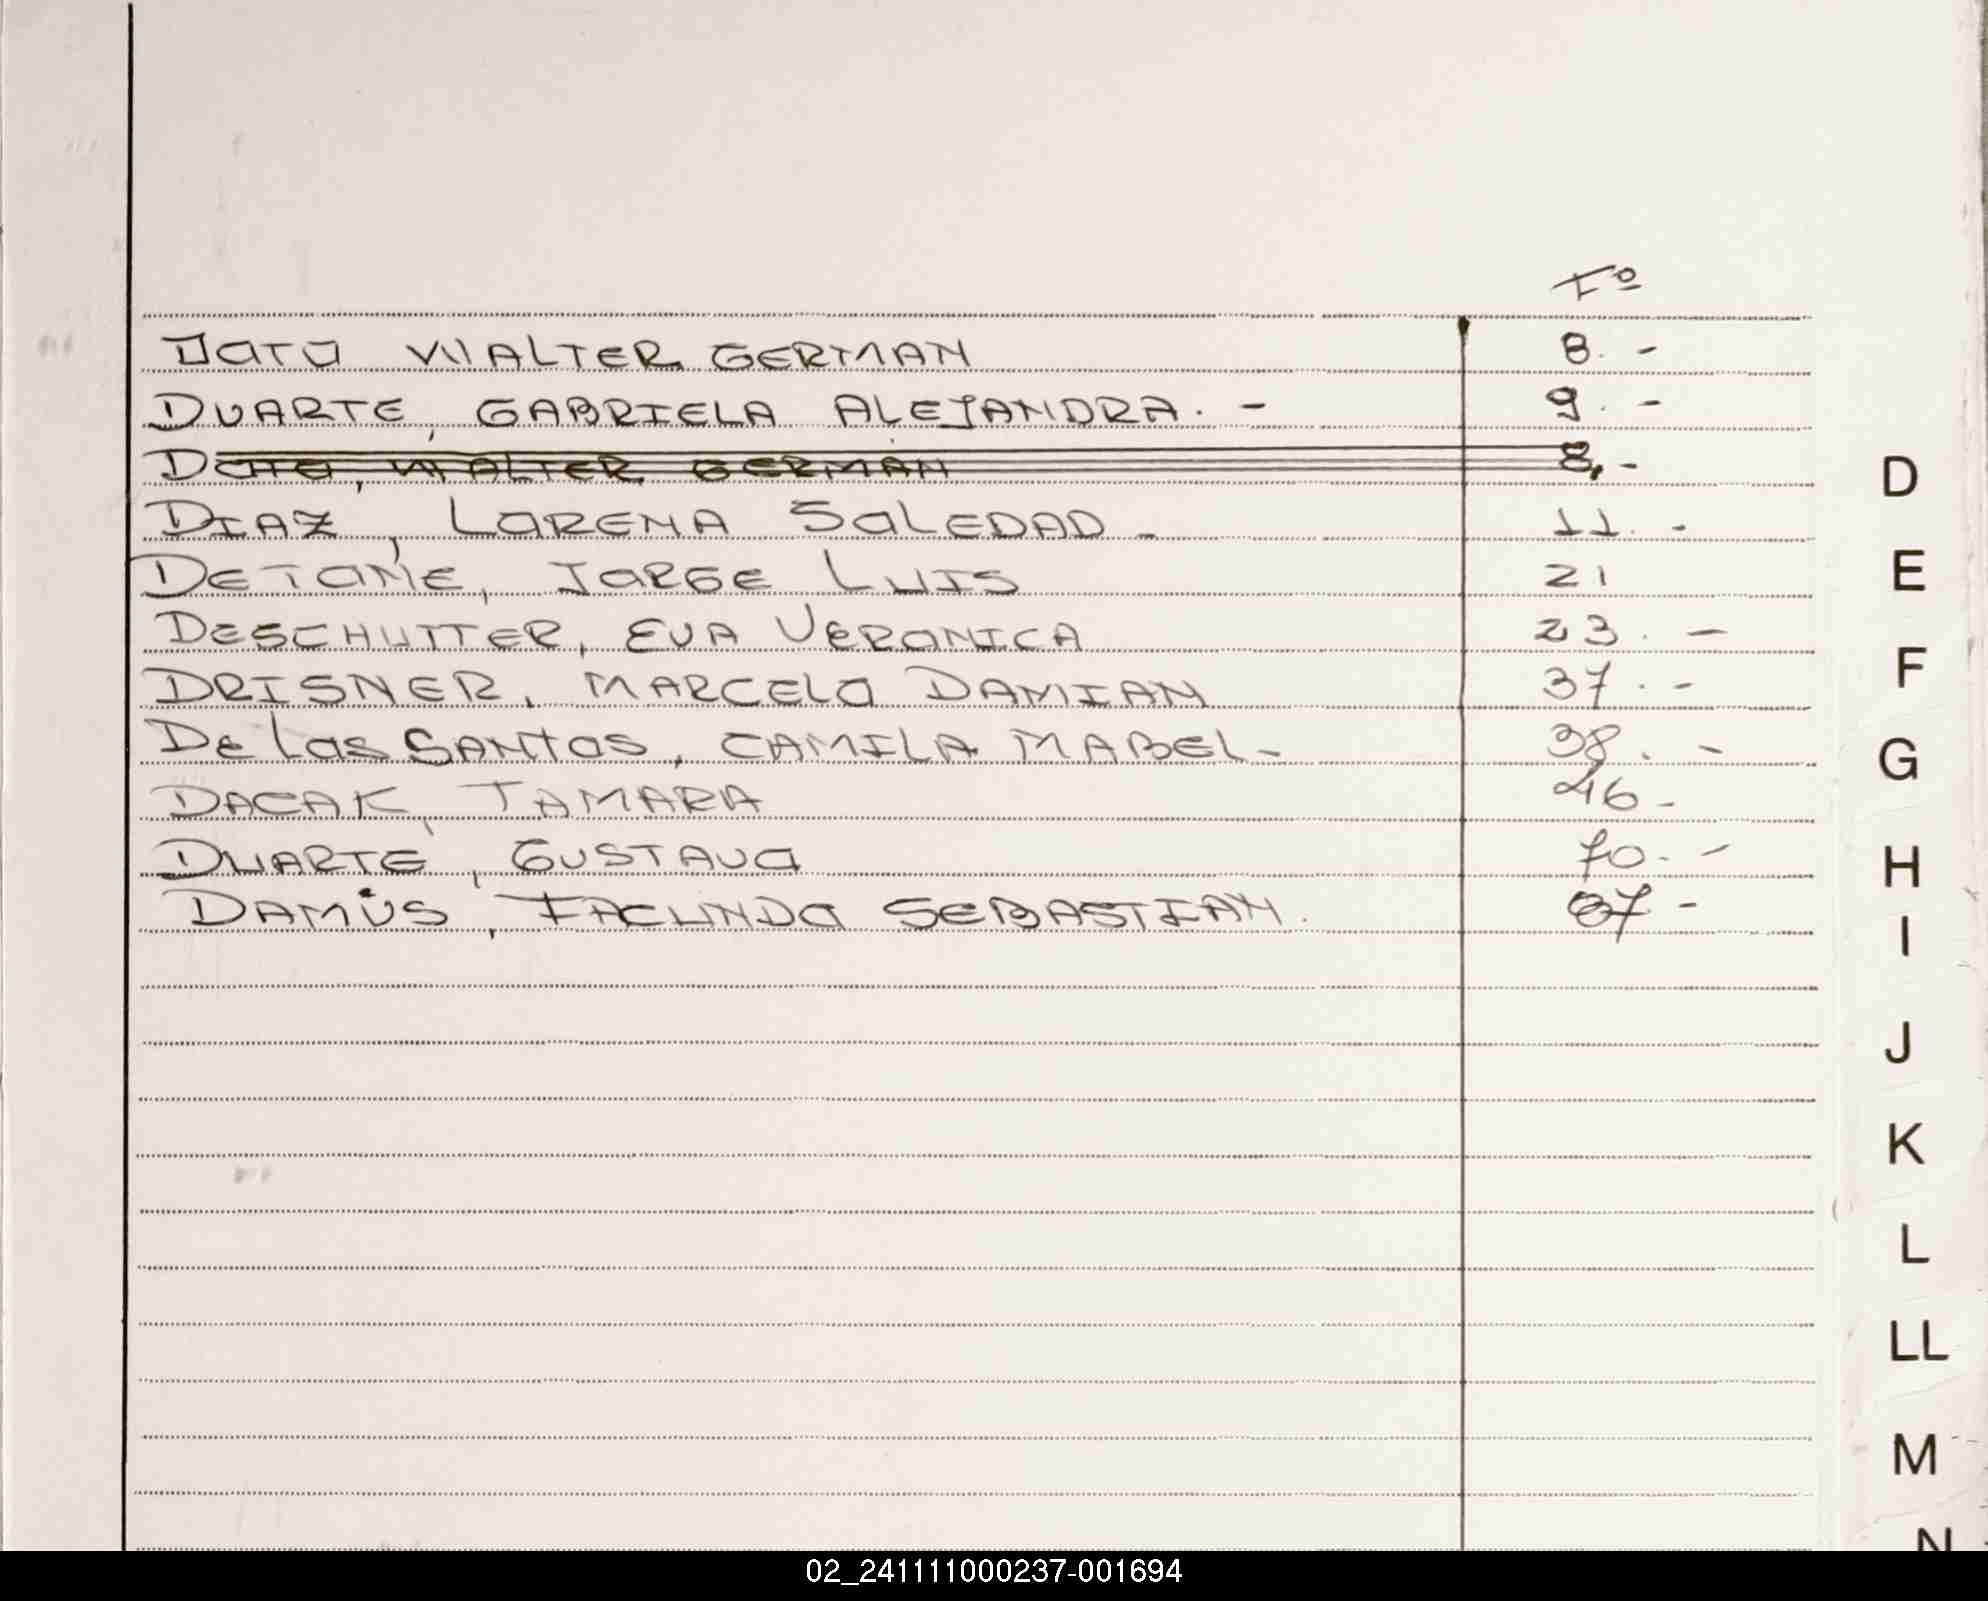 Fº
DOTO WALTER GERMAN 8. -
DUARTE, GABRIELA ALEJANDRA. - 9. -
DOTO, WALTER GERMAN 8. -
DIAZ, LORENA SOLEDAD - 11. -
DETONE, JORGE LUIS 21
DESCHUTTER, EVA VERONICA 23. -
DRISNER, MARCELO DAMIAN 37. -
De Los SANTOS, CAMILA MABEL - 38. -
DACAK, TAMARA 46 -
DUARTE, GUSTAVO 70. -
DAMUS, FACUNDO SEBASTIAN. 87 -
D
E
F
G
H
I
J
K
L
LL
M
N
02_241111000237-001694